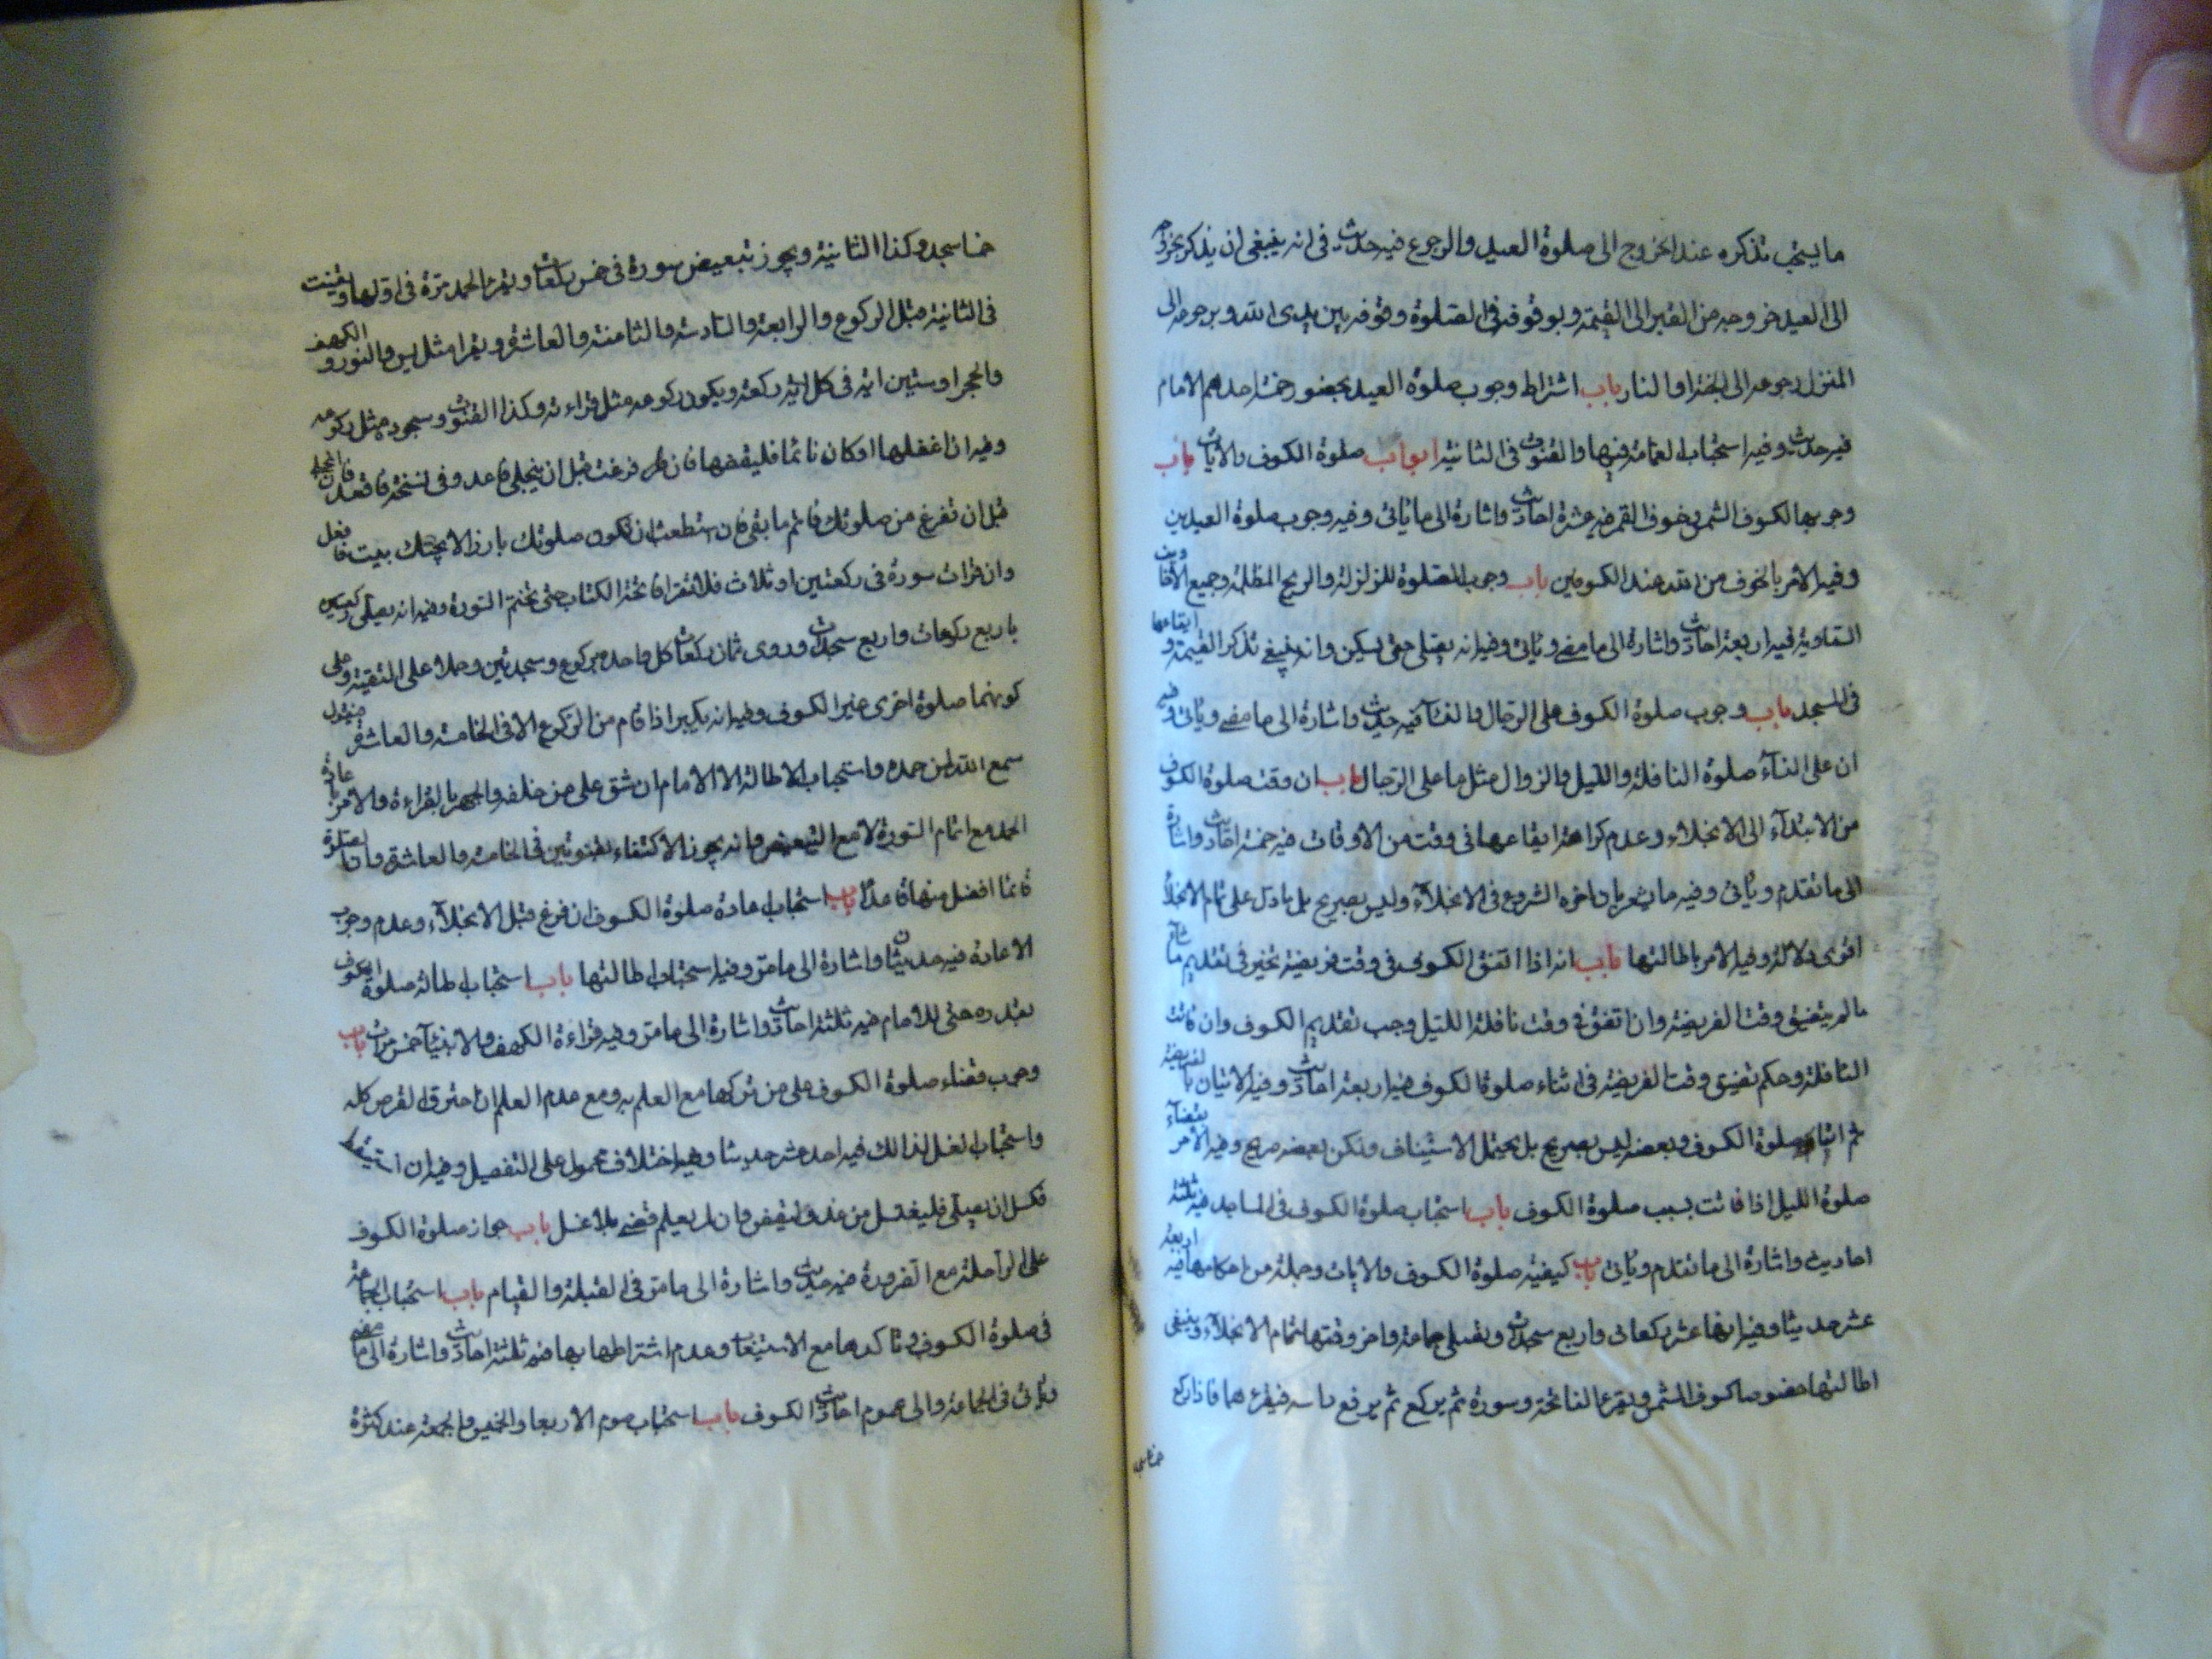 ما يستحب تذكره عند الخروج الى صلوة العيد والرجوع فيه حديث في انه ينبغي ان يذكر بخروجه
الى العيد خروجه من القبر الى القيمة وبوقوفه في الصلوة وقوفه بين يدى الله وبرجوعه الى
المنزل رجوعه الى الجنة او النار باب اشتراط وجوب صلوة العيد بحضور خمسة احدهم الامام
فيه حديث وفيه استحباب العمامة فيها والقنوت في الثانية ابواب صلوة الكسوف والايات باب
وجوبها لكسوف الشمس وخسوف القمر فيه عشرة احاديث واشارة الى ما يأتى وفيه وجوب صلوة العيدين
وفيه الامر بالخوف من الله عند الكسوفين باب وجوب الصلوة للزلزلة والريح المظلمة وجميع الاخاويف
السماوية فيه اربعة احاديث واشارة الى ما مضى ويأتى وفيه انه يصلى حتى يسكن وانه ينبغي تذكر القيمة وايقاعها
في المسجد باب وجوب صلوة الكسوف على الرجال والنسآء فيه حديث واشارة الى ما مضى ويأتى وفيه
ان على النسآء صلوة النافلة والليل والزوال مثل ما على الرجال باب ان وقت صلوة الكسوف
من الابتدآء الى الانجلاء وعدم كراهة ايقاعها في وقت من الاوقات فيه خمسة احاديث واشارة
الى ما تقدم ويأتى وفيه ما يشعر بان اخره الشروع في الانجلآء وليس بصريح بل ما دل على تمام الانجلآ
اقوى دلالة وفيه الامر باطالتها باب انه اذا اتفق الكسوف في وقت فريضة تخير في تقديم ما شآء
ما لم يتضيق وقت الفريضة وان اتفق في وقت نافلة الليل وجب تقديم الكسوف وان فاتت
النافلة وحكم تضيق وقت الفريضة في اثناء صلوة الكسوف فيه اربعة احاديث وفيه الاتيان بالفريضة
ثم اتمام صلوة الكسوف وبعضه ليس بصريح بل يحتمل الاستيناف ولكن بعضه صريح وفيه الامر بقضآء
صلوة الليل اذا فاتت بسبب صلوة الكسوف باب استحباب صلوة الكسوف في المساجد فيه ثلثة
احاديث واشارة الى ما تقدم ويأتى باب كيفية صلوة الكسوف والايات وجملة من احكامها فيه اربعة
عشر حديثا وفيه انها عشر ركعات واربع سجدات وتصلى جماعة واخر وقتها تمام الانجلآء وينبغي
اطالتها خصوصا كسوف الشمس ويقرء الفاتحة وسورة ثم يركع ثم يرفع راسه فيقرءهما فاذا ركع
خمسا سجد
خمسا سجد وكذا الثانية ويجوز تبعيض سورة في خمس ركعات ويقرء الحمد مرة في اولها ويقنت
في الثانية قبل الركوع والرابعة والسادسة والثامنة والعاشرة ويقرا مثل يس والنور والكهف
والحجر او ستين اية في كل اية ركعة ويكون ركوعه مثل قراءته وكذا القنوت وسجوده مثل ركوعه
وفيه ان اغفلها او كان نائما فليقضها فان فرغت قبل ان ينجلى قاعد وفي نسخة فاقعد فان انجلى
قبل ان تفرغ من صلوتك فاتم ما بقى فان استطعت ان تكون صلوتك بارزا لا يجنك بيت فافعل
وان قرات سورة في ركعتين او ثلاث فلا تقرا فاتحة الكتاب حتى تختم السورة وفيه انه يصلى ركعتين
باربع ركوعات واربع سجدات وروى ثمان ركعات كل واحدة بركوع وسجدتين وحملا على التقية وعلى
كونهما صلوة اخرى غير الكسوف وفيه انه يكبر اذا قام من الركوع الا في الخامسة والعاشرة فيقول
سمع الله لمن حمده واستحباب الاطالة الا الامام ان شق على من خلفه والجهر بالقراءة والامر باعادة
الحمد مع اتمام السورة لا مع التبعيض وانه يجوز الاكتفاء بقنوتين في الخامسة والعاشرة وان الصلوة
قائما افضل منها قاعدا باب استحباب اعادة صلوة الكسوف ان فرغ قبل الانجلآء وعدم وجوب
الاعادة فيه حديثان واشارة الى ما مر وفيه استحباب اطالتها باب استحباب اطالة صلوة الكسوف
بقدره حتى للامام فيه ثلثة احاديث واشارة الى ما مر وفيه قراءة الكهف والانبيآ خمس مرات باب
وجوب قضاء صلوة الكسوف على من تركها مع العلم به ومع عدم العلم ان احترق القرص كله
واستحباب الغسل لذلك فيه احد عشر حديثا وفيه اختلاف محمول على التفصيل وفيه ان استيقظ
فكسل ان يصلى فليغتسل من غد وليقض وان لم يعلم قضى بلا غسل باب جواز صلوة الكسوف
على الراحلة مع الضرورة فيه حديث واشارة الى ما مر في القبلة والقيام باب استحباب الجماعة
في صلوة الكسوف وتاكدها مع الاستيعاب وعدم اشتراطها بها فيه ثلثة احاديث واشارة الى ما مضى
ويأتى في الجماعة والى عموم احاديث الكسوف باب استحباب صوم الاربعا والخميس والجمعة عند كثرة